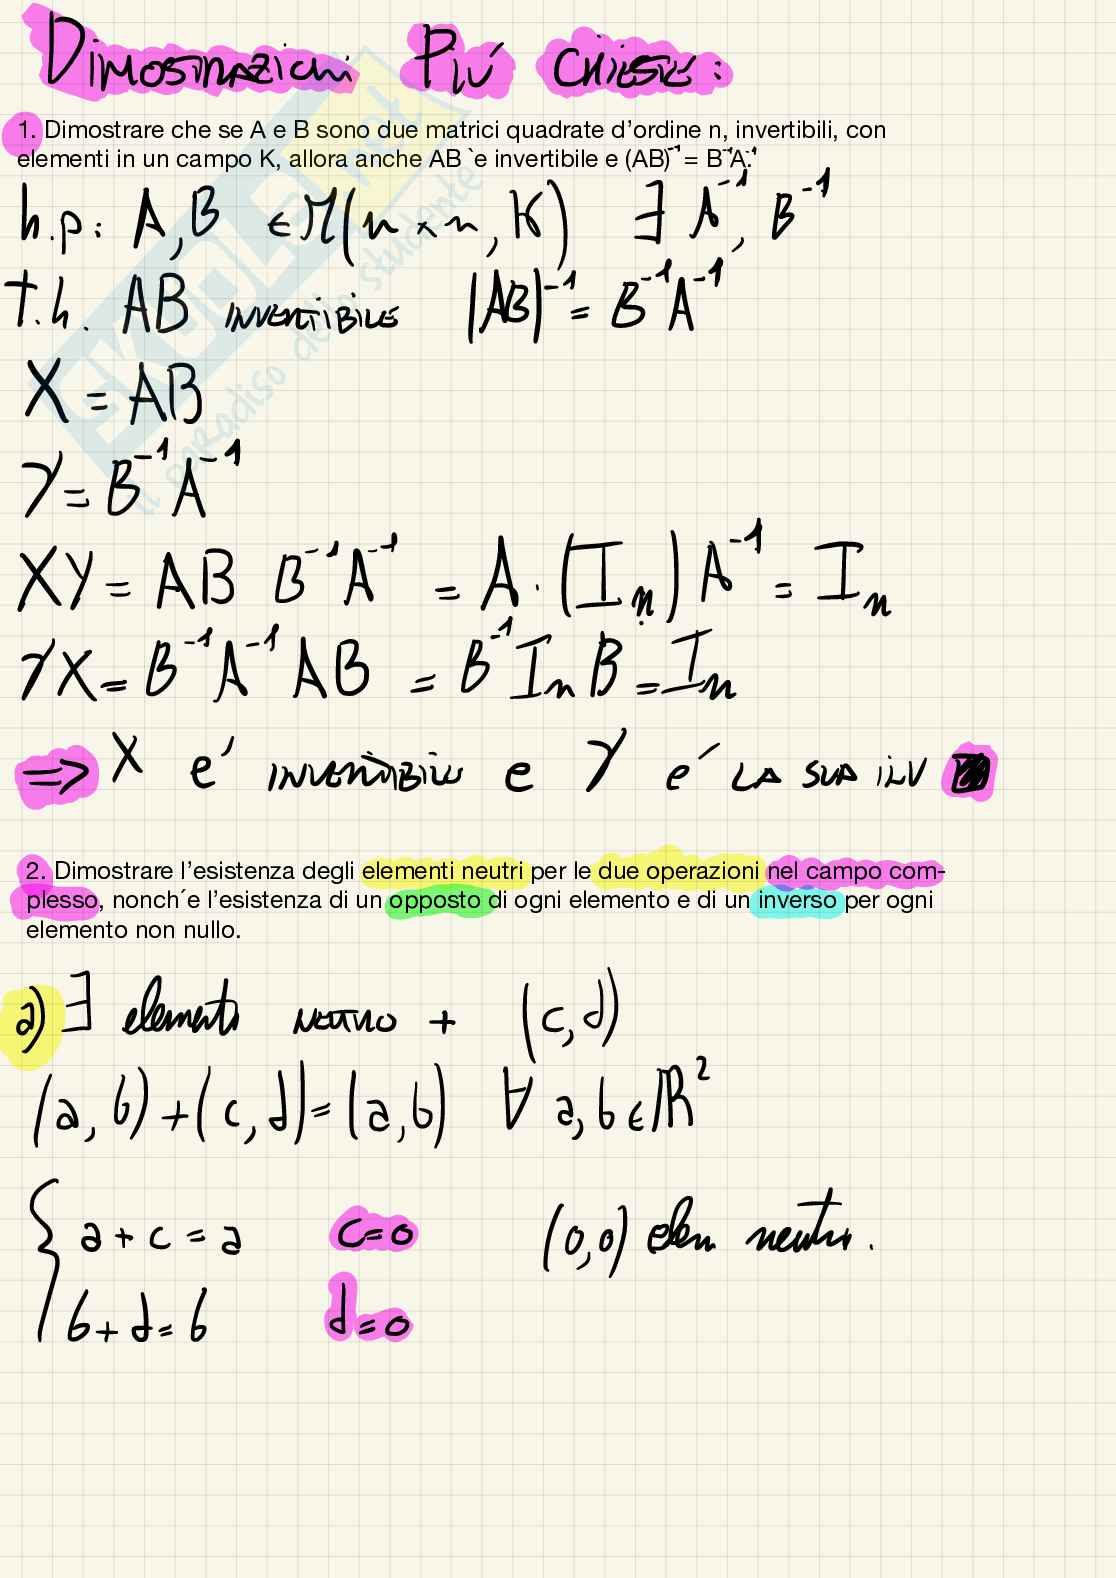 Dimostrazioni Più Chieste:
1. Dimostrare che se A e B sono due matrici quadrate d'ordine n, invertibili, con
elementi in un campo K, allora anche AB `e invertibile e (AB)⁻¹ = B⁻¹A⁻¹.
h.p: A, B ∈ M(n×n, K) ∃ A⁻¹, B⁻¹
t.h. AB INVERTIBILE |AB|⁻¹ = B⁻¹A⁻¹
X = AB
Y = B⁻¹A⁻¹
XY = AB B⁻¹A⁻¹ = A·(Iₙ)A⁻¹ = Iₙ
YX = B⁻¹A⁻¹AB = B⁻¹IₙB = Iₙ
⇒ X e' INVERTIBILE e Y e' LA SUA INV
2. Dimostrare l'esistenza degli elementi neutri per le due operazioni nel campo com-
plesso, nonch´e l'esistenza di un opposto di ogni elemento e di un inverso per ogni
elemento non nullo.
a) ∃ elemento neutro + (c,d)
(a,b)+(c,d)=(a,b) ∀ a,b ∈ ℝ²
{ a+c=a c=0 (0,0) elem neutro.
b+d=b d=0
SKUOLA.net
il paradiso dello studente